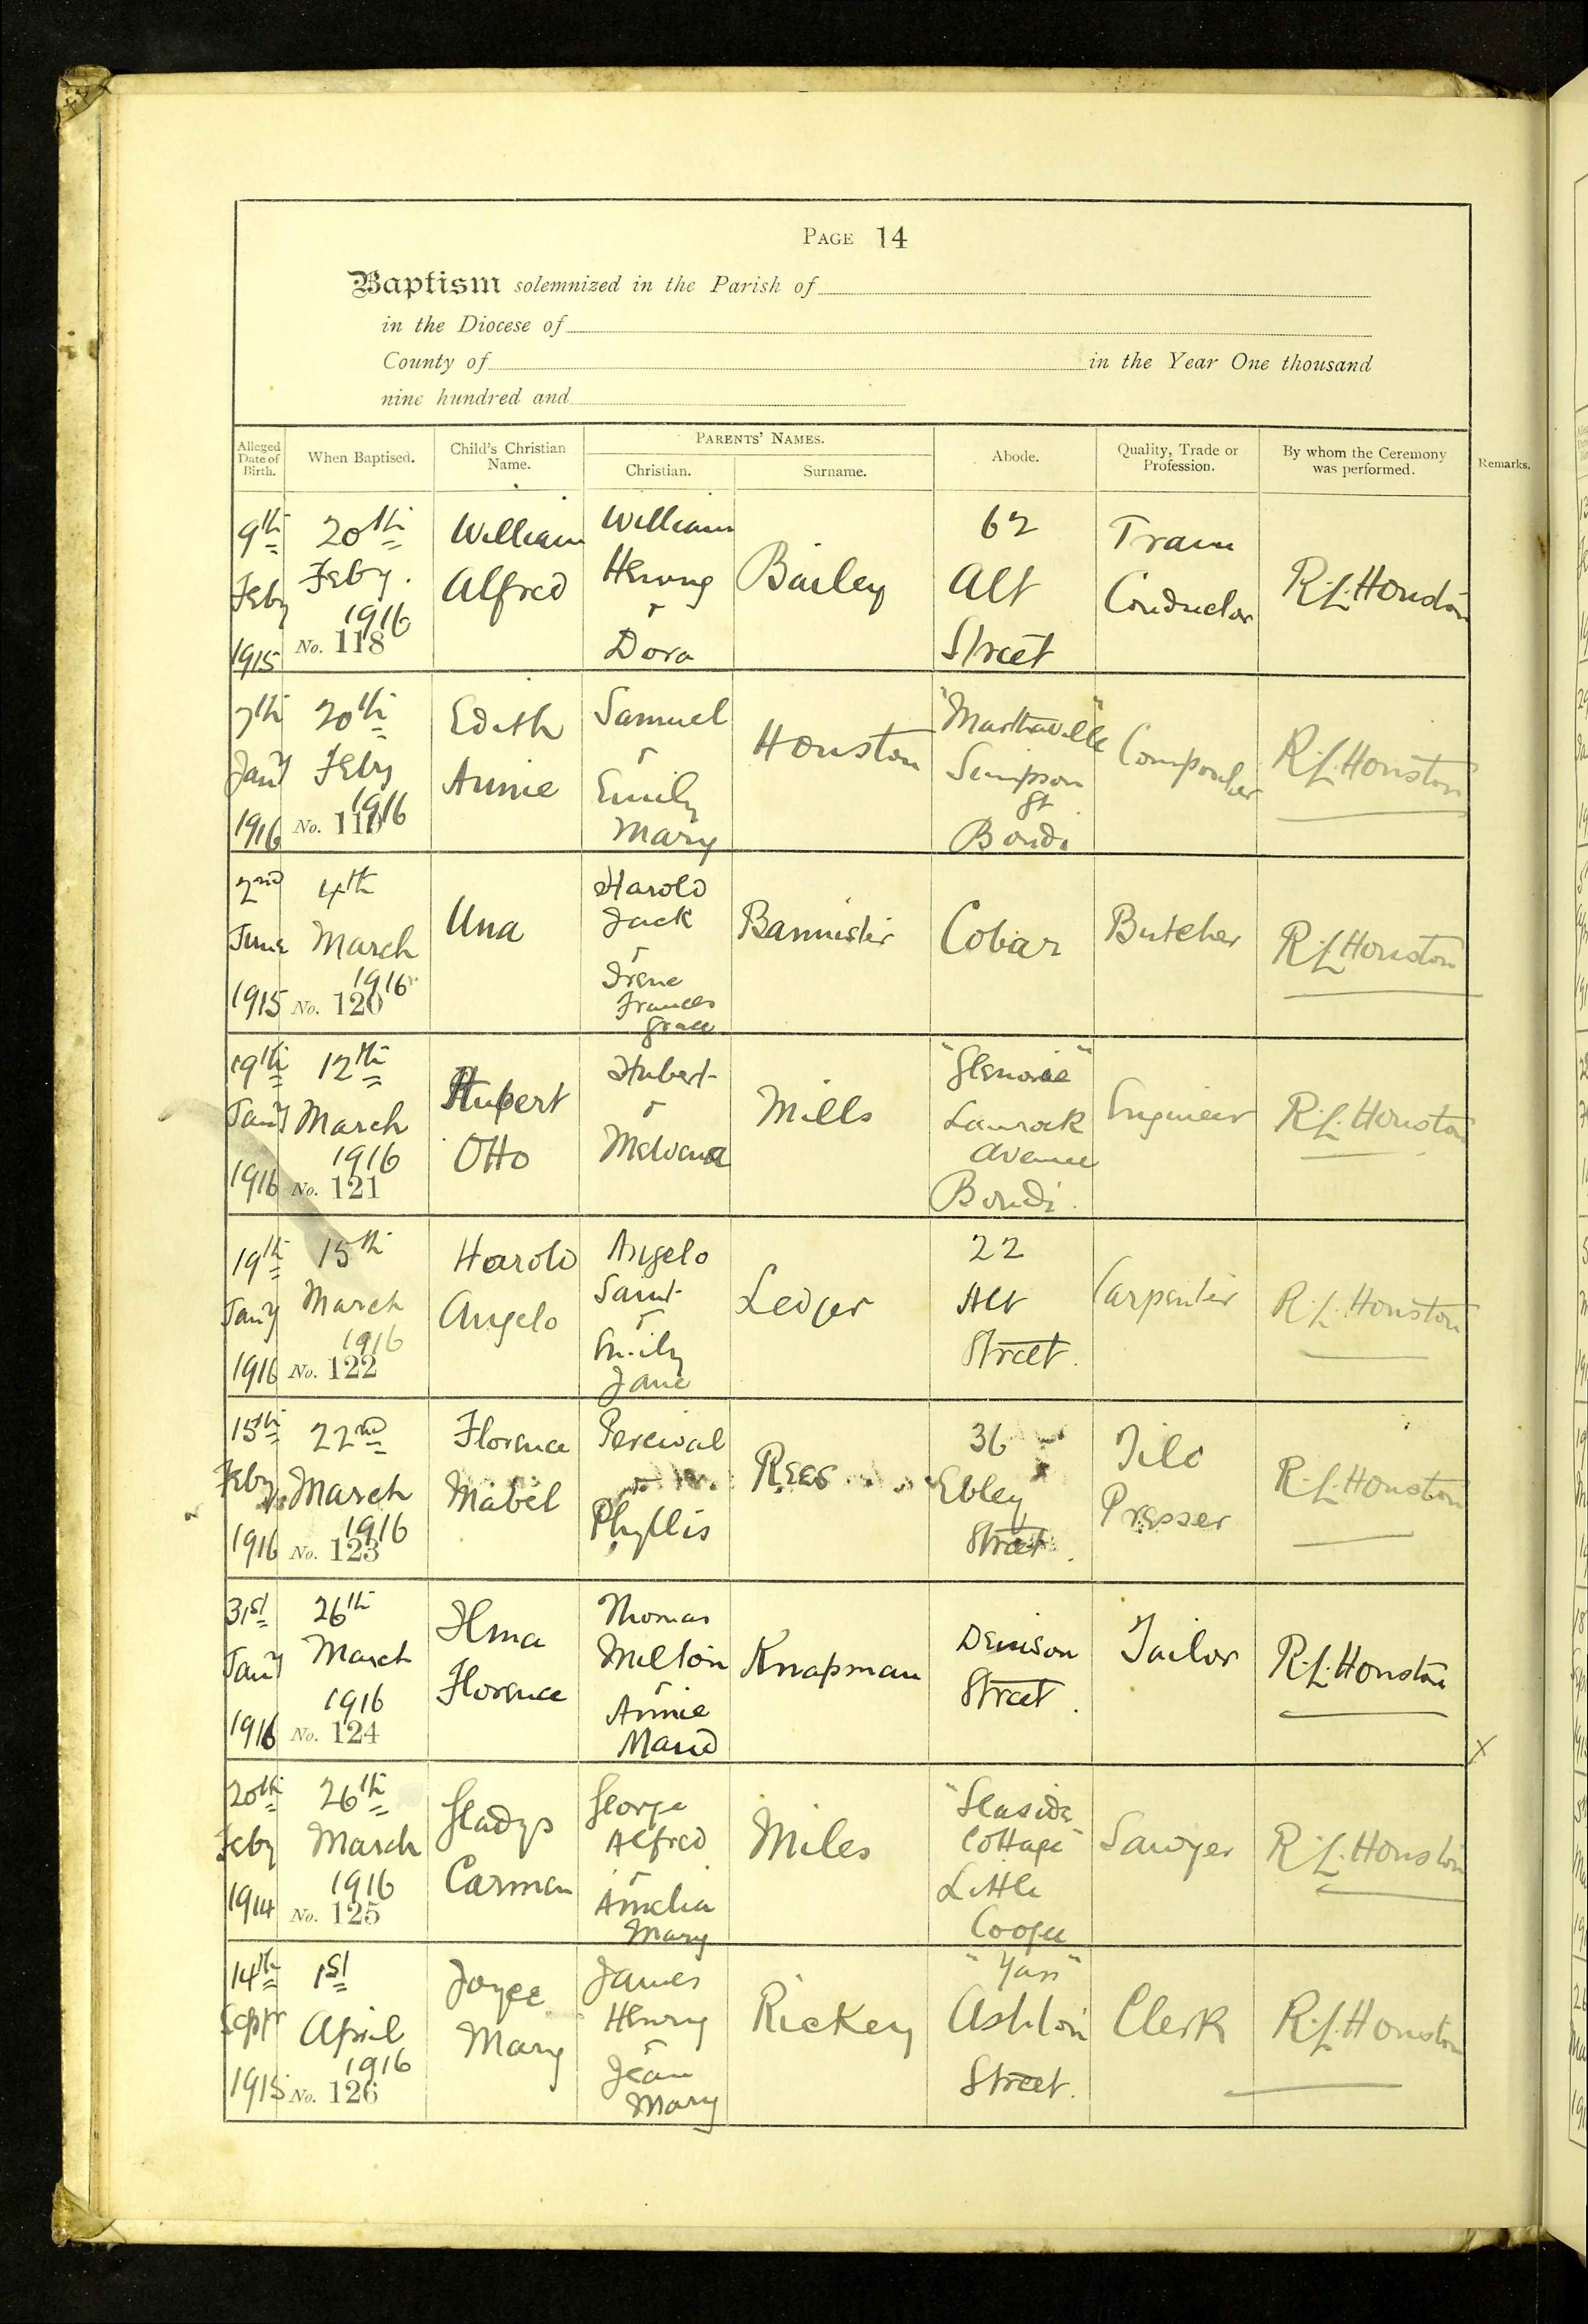 PAGE 14
Baptism solemnized in the Parish of
in the Diocese of
County of in the Year One thousand
nine hundred and
Alleged Date of Birth.
When Baptised.
Child's Christian Name.
PARENTS' NAMES.
Christian.
Surname.
Abode.
Quality, Trade or Profession.
By whom the Ceremony was performed.
Remarks.
9th Feby 1915
20th Feby. 1916 No. 118
William Alfred
William Henry + Dora
Bailey
62 Alt Street
Tram Conductor
R.L. Houston
7th Jany 1916
20th Feby 1916 No. 119
Edith Annie
Samuel + Emily Mary
Houston
"Marthaville" Simpson St Bondi
Compositer
R.L. Houston
2nd June 1915
4th March 1916 No. 120
Una
Harold Jack + Irene Frances Grace
Bannister
Cobar
Butcher
R.L. Houston
19th Jany 1916
12th March 1916 No. 121
Hubert Otto
Hubert +
Mills
Avenue Bondi.
Engineer
R.L. Houston
19th Jany 1916
15th March 1916 No. 122
Harold Angelo
Angelo Saint + Emily Jane
Ledger
22 Alt Street.
Carpenter
R.L. Houston
15th Feby 1916
22nd March 1916 No. 123
Florence Mabel
Percival + Phyllis
Rees
36 Ebley Street.
Tile Presser
R.L. Houston
31st Jany 1916
26th March 1916 No. 124
Ilma Florence
Thomas Milton + Annie Maud
Knapman
Denison Street.
Tailor
R.L. Houston
X
20th Feby 1914
26th March 1916 No. 125
Gladys Carmen
George Alfred + Amelia Mary
Miles
"Seaside Cottage" Little Coogee
Sawyer
R.L. Houston
14th Sept 1915
1st April 1916 No. 126
Joyce Mary
James Henry + Jean Mary
Rickey
"Yass" Ashton Street.
Clerk
R.L. Houston